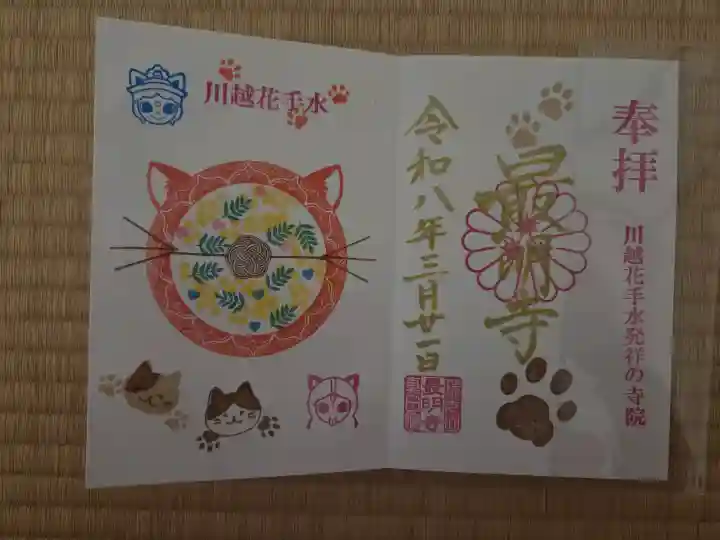 奉拝
川越花手水発祥の寺院
最明寺
令和八年三月廿一日
川越花手水